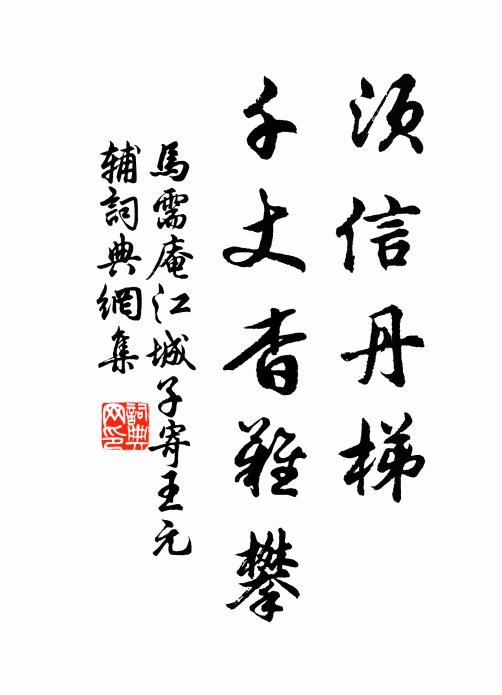 须信丹梯
千丈杳難攀
馬需庵江城子寄王元
辅詞典網集
詞典
网印